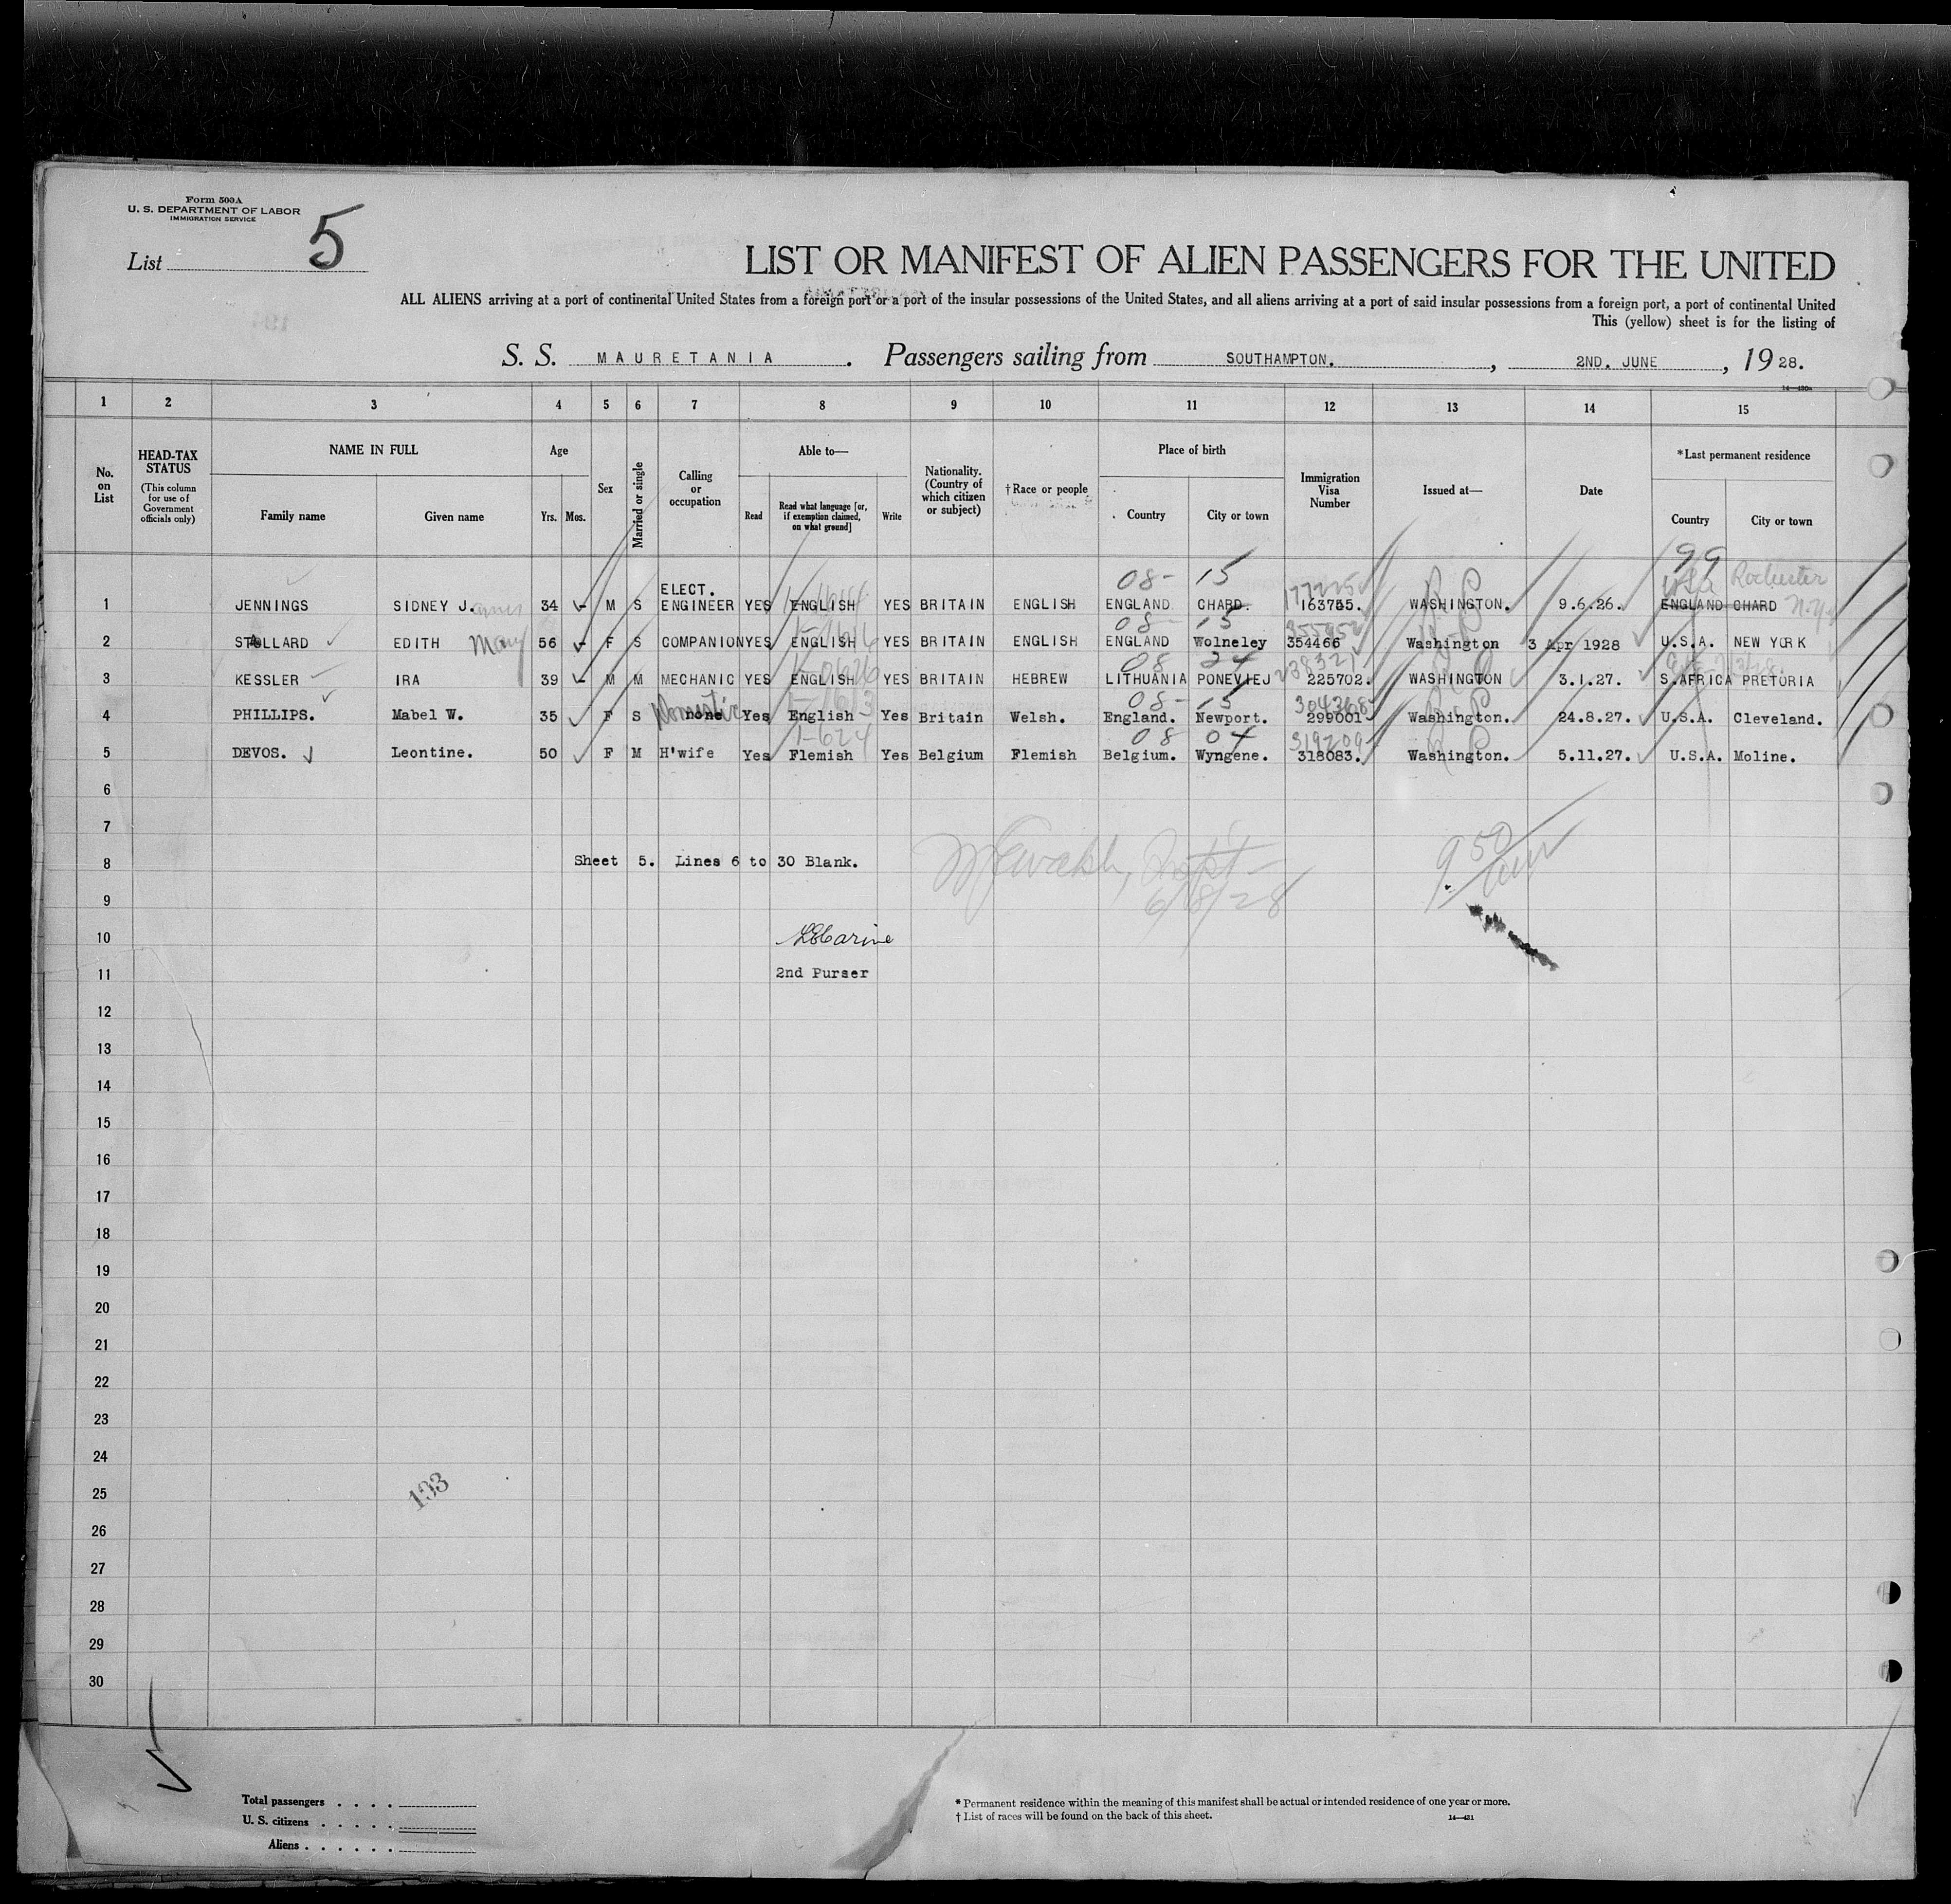 Form 500A
U. S. DEPARTMENT OF LABOR
IMMIGRATION SERVICE
List 5
LIST OR MANIFEST OF ALIEN PASSENGERS FOR THE UNITED
ALL ALIENS arriving at a port of continental United States from a foreign port or a port of the insular possessions of the United States, and all aliens arriving at a port of said insular possessions from a foreign port, a port of continental United
This (yellow) sheet is for the listing of
S. S. MAURETANIA. Passengers sailing from SOUTHAMPTON., 2ND. JUNE, 1928.
1 2 3 4 5 6 7 8 9 10 11 12 13 14 15
No. on List
HEAD-TAX STATUS
(This column for use of Government officials only)
NAME IN FULL
Family name Given name
Age
Yrs. Mos.
Sex
Married or single
Calling or occupation
Able to—
Read Read what language [or, if exemption claimed, on what ground] Write
Nationality. (Country of which citizen or subject)
†Race or people
Place of birth
Country City or town
Immigration Visa Number
Issued at—
Date
*Last permanent residence
Country City or town
99
08- 15 USA Rochester
1 JENNINGS SIDNEY J. 34 - M S ELECT. ENGINEER YES ENGLISH YES BRITAIN ENGLISH ENGLAND CHARD. 163755. WASHINGTON. 9.6.26. ENGLAND CHARD N.Y.
08- 15
2 STALLARD EDITH Mary 56 - F S COMPANION YES ENGLISH YES BRITAIN ENGLISH ENGLAND Wolneley 354466 Washington 3 Apr 1928 U.S.A. NEW YORK
08 24 238321
3 KESSLER IRA 39 - M M MECHANIC YES ENGLISH YES BRITAIN HEBREW LITHUANIA PONEVIEJ 225702. WASHINGTON 3.1.27. S.AFRICA PRETORIA
08- 15 304368
4 PHILLIPS. Mabel W. 35 F S none Domestic Yes English Yes Britain Welsh. England. Newport. 299001 Washington. 24.8.27. U.S.A. Cleveland.
1-624 08 04 319209
5 DEVOS. Leontine. 50 F M H'wife Yes Flemish Yes Belgium Flemish Belgium. Wyngene. 318083. Washington. 5.11.27. U.S.A. Moline.
6
7
8 Sheet 5. Lines 6 to 30 Blank.
9 6/8/28
9 50
10
11 2nd Purser
12
13
14
15
16
17
18
19
20
21
22
23
24
25 193
26
27
28
29
30
Total passengers
U. S. citizens
Aliens
* Permanent residence within the meaning of this manifest shall be actual or intended residence of one year or more.
† List of races will be found on the back of this sheet.
14—431